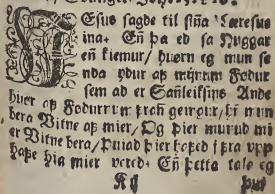 JEsus sagde til sijna Læresue
ina. En þa ed sa Huggar
en kiemur / huern eg mun se
nda ydur af mijnum Fodur
sem ad er Sañleiksins Ande
huer af Fodurnum fran geingur / hñ mun
bera Vitne af mier / Og þier munud mi
er Vitne bera / þuiad þier hafed i fra vpp
hafe hia mier vered. En þetta tala eg
K ij
þud